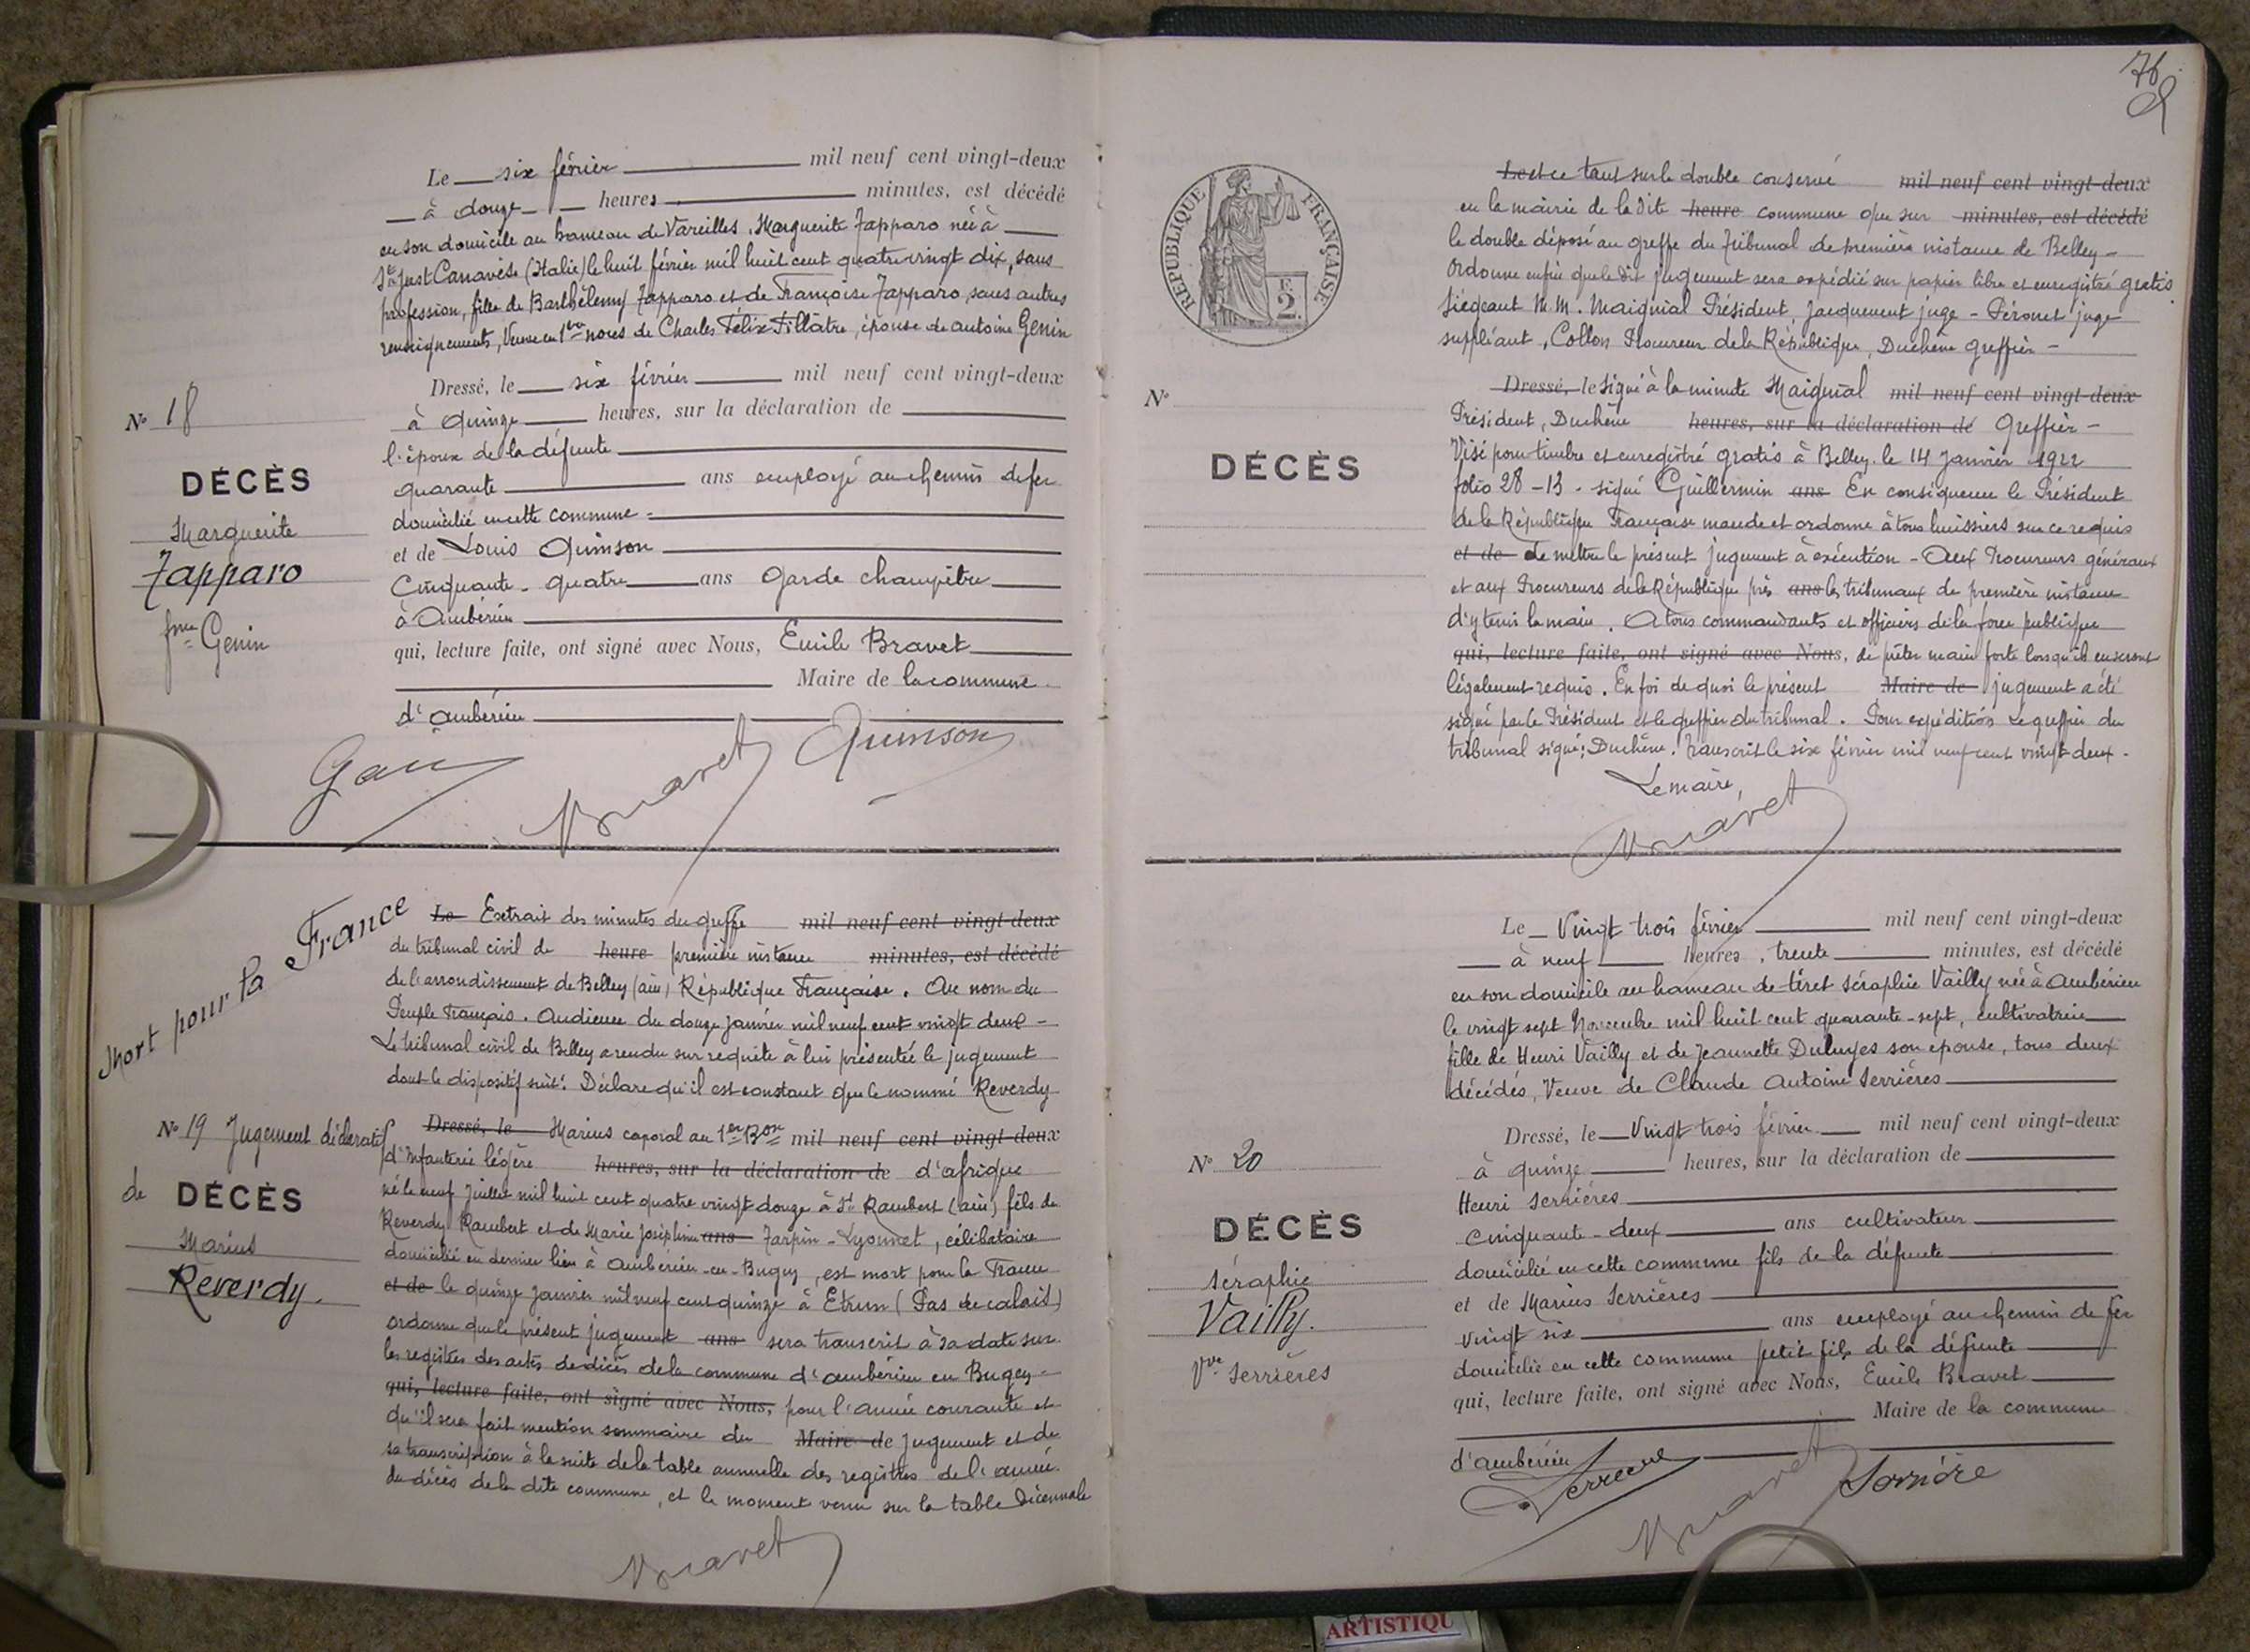 Le six février mil neuf cent vingt-deux
à douze heures minutes, est décédé
en son domicile au hameau de Vareilles, Marguerite Zapparo née à
St Just Canavèse (Italie) le huit février mil huit cent quatre vingt dix, sans
profession, fille de Barthélemy Zapparo et de Françoise Zapparo, sans autres
renseignements, Veuve en 1ères noces de Charles Félix Fillâtre, épouse de antoine Genin
Dressé, le six février mil neuf cent vingt-deux
à quinze heures, sur la déclaration de
l'époux de la défunte
quarante ans employé au chemin de fer
domicilié en cette commune
et de Louis Quinson
Cinquante-quatre ans garde champêtre
à Ambérieu
qui, lecture faite, ont signé avec Nous, Emile Bravet
Maire de la commune
d'ambérieu
No 18
DÉCÈS
Marguerite
Zapparo
fme Genin
Bravet Quinson
Mort pour la France
Le Extrait des minutes du greffe mil neuf cent vingt-deux
du tribunal civil de heure première instance minutes, est décédé
de l'arrondissement de Belley (ain) République Française. Au nom du
Peuple Français. Audience du douze janvier mil neuf cent vingt deux -
Le tribunal civil de Belley a rendu sur requête à lui présentée le jugement
dont le dispositif suit: Déclare qu'il est constant que le nommé Reverdy
Dressé, le Marius caporal au 1er Bon mil neuf cent vingt-deux
d'infanterie légère heures, sur la déclaration de d'afrique
né le neuf Juillet mil huit cent quatre vingt douze à St Rambert (ain) fils de
Reverdy Rambert et de Marie Joséphine ans Tarpin-Lyonnet, célibataire
domicilié en dernier lieu à Ambérieu-en-Bugey, est mort pour la France
et de le quinze janvier mil neuf cent quinze à Etrun (Pas de calais)
ordonne que le présent jugement ans sera transcrit à sa date sur
les registres des actes de décès de la commune d'ambérieu en Bugey
qui, lecture faite, ont signé avec Nous, pour l'année courante et
qu'il sera fait mention sommaire du Maire de jugement et de
sa transcription à la suite de la table annuelle des registres de l'année
du décès de la dite commune, et le moment venu sur la table décennale
No 19 Jugement déclaratif
de DÉCÈS
Marius
Reverdy.
Bravet
76
RÉPUBLIQUE FRANÇAISE
F. 2.
Le et ce tant sur le double conservé mil neuf cent vingt-deux
en la mairie de la dite heure commune que sur minutes, est décédé
le double déposé au greffe du tribunal de première instance de Belley -
Ordonne enfin que le dit jugement sera expédié sur papier libre et enregistré gratis
Siégeant M.M. Maignial Président, Jacquemet juge - Péronet juge
suppléant, Collon Procureur de la République, Duchêne greffier -
Dressé, le signé à la minute Maignial mil neuf cent vingt-deux
Président, Duchêne heures, sur la déclaration de Greffier -
Visé pour timbre et enregistré gratis à Belley, le 14 Janvier 1922
folio 28-13. signé Guillermin ans En conséquence le Président
de la République Française mande et ordonne à tous huissiers sur ce requis
et de de mettre le présent jugement à exécution - Aux Procureurs généraux
et aux Procureurs de la République près ans les tribunaux de première instance
d'y tenir la main. A tous commandants et officiers de la force publique
qui, lecture faite, ont signé avec Nous, de prêter main forte lorsqu'ils en seront
légalement requis. En foi de quoi le présent Maire de jugement a été
signé par le Président et le greffier du tribunal. Pour expédition Le greffier du
tribunal signé: Duchêne. Transcrit le six février mil neuf cent vingt deux.
Le maire,
Bravet
No
DÉCÈS
Le Vingt trois février mil neuf cent vingt-deux
à neuf heures, trente minutes, est décédé
en son domicile au hameau de tiret Séraphie Vailly née à Ambérieu
le vingt sept Novembre mil huit cent quarante-sept, cultivatrice
fille de Henri Vailly et de Jeannette son epouse, tous deux
décédés, Veuve de Claude Antoine Serrières
Dressé, le Vingt trois février mil neuf cent vingt-deux
à quinze heures, sur la déclaration de
Henri Serrières
cinquante-deux ans cultivateur
domicilié en cette commune fils de la défunte
et de Marius Serrières
vingt six ans employé au chemin de fer
domicilié en cette commune petit fils de la défunte
qui, lecture faite, ont signé avec Nous, Emile Bravet
Maire de la commune
d'ambérieu
No 20
DÉCÈS
Séraphie
Vailly.
Vve Serrières
Bravet Serrière
ARTISTIQU